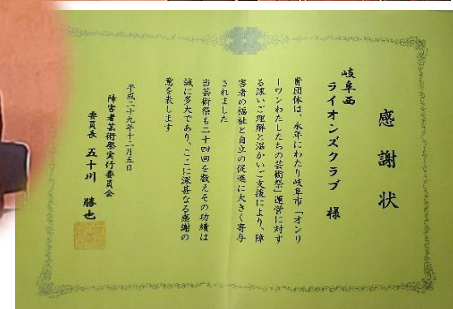 感謝状
岐阜西
ライオンズクラブ 様
貴団体は、永年にわたり岐阜市「オンリ
ーワンわたしたちの芸術祭」運営に対す
る深いご理解と温かいご支援により、障
害者の福祉と自立の促進に大きく寄与
されました
当芸術祭も二十四回を数えその功績は
誠に多大であり、ここに深甚なる感謝の
意を表します
平成二十九年十二月五日
障害者芸術祭実行委員会
委員長 五十川 勝也